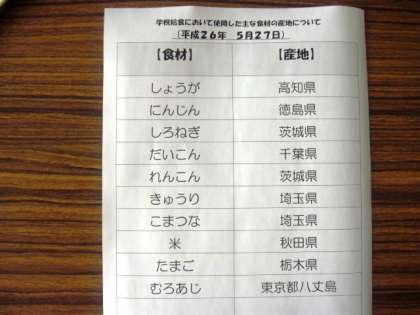 学校給食において使用した主な食材の産地について
(平成26年 5月27日)
【食材】 【産地】
しょうが 高知県
にんじん 徳島県
しろねぎ 茨城県
だいこん 千葉県
れんこん 茨城県
きゅうり 埼玉県
こまつな 埼玉県
米 秋田県
たまご 栃木県
むろあじ 東京都八丈島